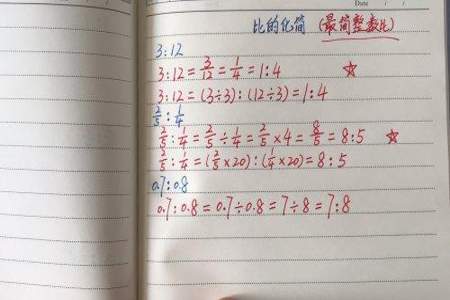 Date / /
比的化简 (最简整数比)
3:12
3:12=3/12=1/4=1:4 ☆
3:12=(3÷3):(12÷3)=1:4
2/5:1/4
2/5:1/4=2/5÷1/4=2/5×4=8/5=8:5 ☆
2/5:1/4=(2/5×20):(1/4×20)=8:5
0.7:0.8
0.7:0.8=0.7÷0.8=7÷8=7:8